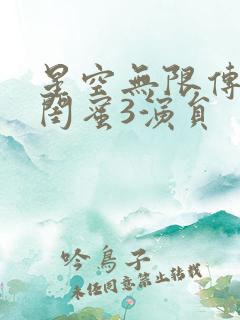 星空無限傳
閨蜜3-演員
吟鳥子
未经同意禁止转载